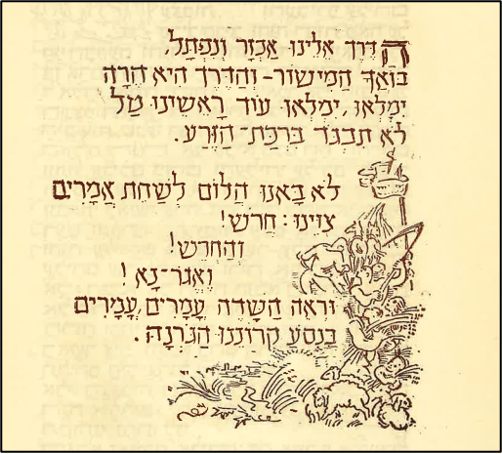 הַדֶּרֶךְ אֵלֵינוּ אַכְזָר וְנִפְתָּל,
בּוֹאֲךָ הַמִּישׁוֹר – וְהַדֶּרֶךְ הִיא הָרָה
יִמָּלְאוּ, יִמָּלְאוּ עוֹד רָאשֵׁינוּ טַל
לֹא תִבְגֹּד בִּרְכַּת־הַזֶּרַע.
לֹא בָאנוּ הֲלוֹם לְשַׁחֵת אֲמָרִים
צֻוֵּינוּ: חֲרֹשׁ!
וְהַחֲרֵשׁ!
וֶאֱגֹר־נָא!
וּרְאֵה הַשָּׂדֶה עֳמָרִים, עֳמָרִים
בִּנְסֹעַ קְרוֹנֵנוּ הַגֹּרְנָה.